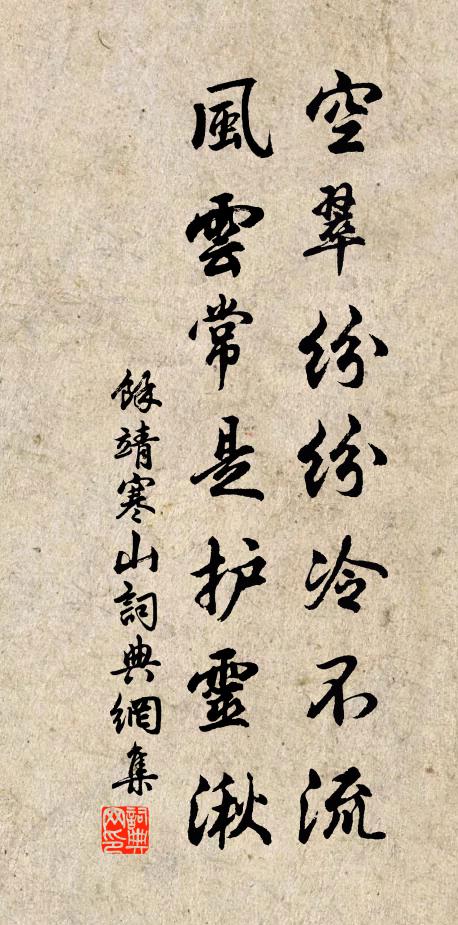 空翠紛紛冷不流
風雲常是护靈湫
餘靖寒山詞典網集
詞典网印